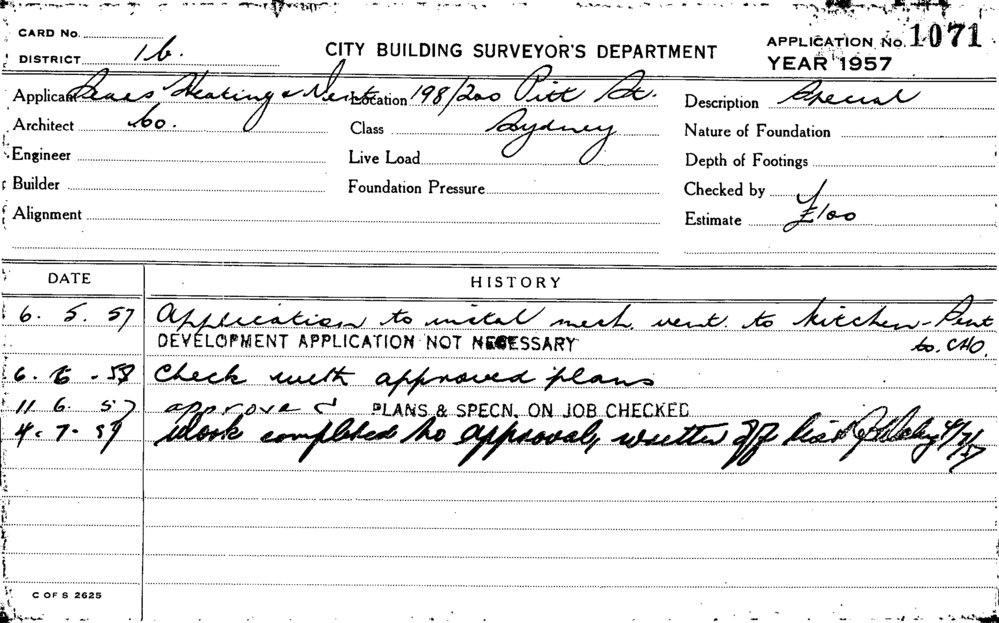 CARD No.
DISTRICT 1b.
CITY BUILDING SURVEYOR'S DEPARTMENT
APPLICATION No. 1071
YEAR 1957
Applicant Heating & Vent
Location 198/200 Pitt St.
Description Special
Architect Co.
Class Sydney
Nature of Foundation
Engineer
Live Load
Depth of Footings
Builder
Foundation Pressure
Checked by
Alignment
Estimate £100
DATE
HISTORY
6. 5. 57 Application to instal mech. vent. to kitchen - Sent
DEVELOPMENT APPLICATION NOT NECESSARY to. CHO.
6. 6. 57 Check with approved plans
11 6. 57 approved PLANS & SPECN. ON JOB CHECKED
4. 7. 57 Work completed to approval, written off list 4/7/57
C OF S 2625